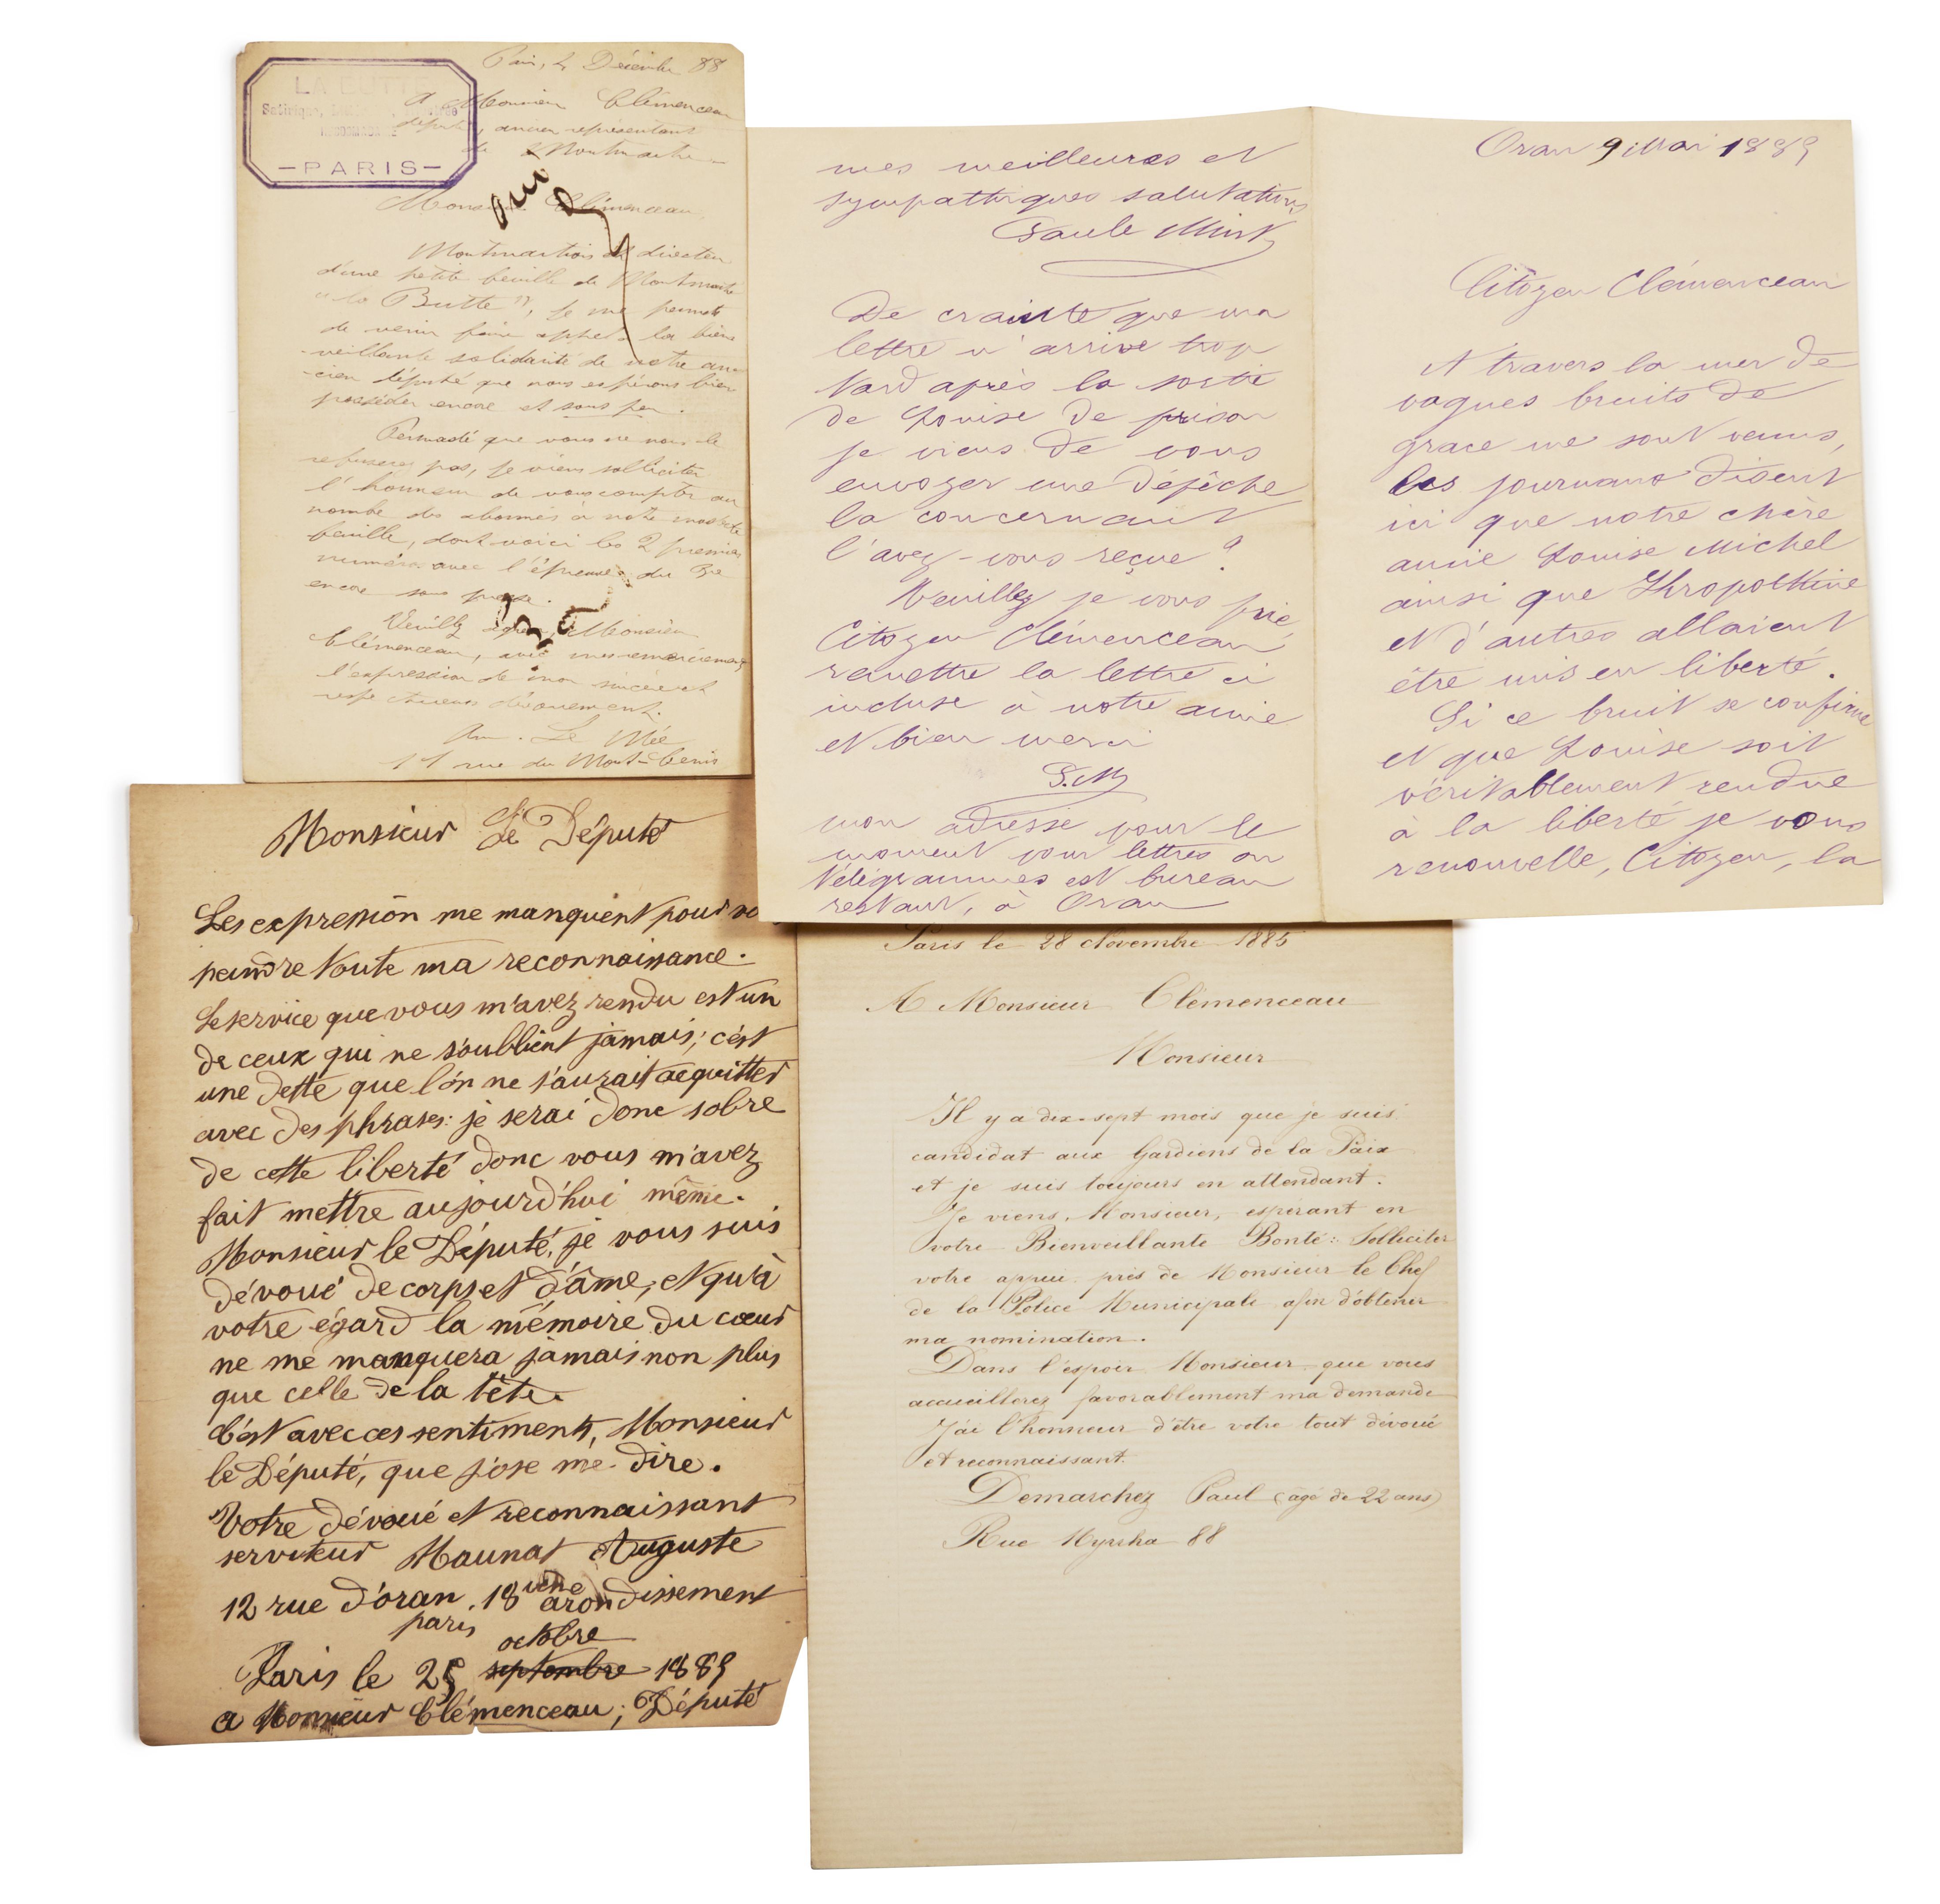 LA BUTTE
Satirique, 
- PARIS -
Paris, 2 Décembre 88
A Monsieur Clémenceau
député, ancien représentant
de Montmartre
Monsieur Clémenceau
oui
Montmartrois et directeur
d'une petite feuille de Montmartre
"la Butte", je me permets
de venir faire appel à la bien-
-veillante solidarité de notre an-
-cien député que nous espérons bien
posséder encore et sous peu.
Persuadé que vous ne nous le
refuserez pas, je viens solliciter
l'honneur de vous compter au
nombre des abonnés à notre modeste
feuille, dont voici les 2 premiers
numéros avec l'épreuve du 3e
encore sous presse.
Veuillez agréer, Monsieur
Clémenceau, avec mes remerciements
l'expression de mon sincère et
respectueux dévouement.
Le Mée
rue du Mont-Cenis
mes meilleures et
sympathiques salutations
Paule Mink
De crainte que ma
lettre n'arrive trop
tard après la sortie
de Louise de prison
je viens de vous
envoyer une dépêche
la concernant
l'avez-vous reçue ?
Veuillez je vous prie,
Citoyen Clémenceau,
remettre la lettre ci
incluse à notre amie
et bien merci
P.M
mon adresse pour le
moment pour lettres ou
télégrammes est bureau
restant, à Oran
Oran 9 Mai 1885
Citoyen Clémenceau
A travers la mer de
vagues bruits de
grace me sont venus,
les journaux disent
ici que notre chère
amie Louise Michel
ainsi que Kropoltkine
et d'autres allaient
être mis en liberté.
Si ce bruit se confirme
et que Louise soit
véritablement rendue
à la liberté je vous
renouvelle, Citoyen, la
Monsieur Le Député
Les expression me manquent pour
peindre toute ma reconnaissance.
Le service que vous m'avez rendu est un
de ceux qui ne s'oublient jamais; c'est
une dette que l'on ne s'aurait acquitter
avec des phrases: je serai donc sobre
de cette liberté donc vous m'avez
fait mettre aujourd'hui même.
Monsieur le Député, je vous suis
dévoué de corps et d'âme, et qu'à
votre égard la mémoire du cœur
ne me manquera jamais non plus
que celle de la tête.
C'est avec ces sentiments, Monsieur
le Député, que j'ose me dire.
Votre dévoué et reconnaissant
serviteur Maunat Auguste
12 rue d'oran. 18 ème arondissement
paris
octobre
Paris le 25 septembre 1885
a Monsieur Clémenceau; Député
Paris le 28 Novembre 1885
A Monsieur Clémenceau
Monsieur
Il y a dix-sept mois que je suis
candidat aux Gardiens de la Paix
et je suis toujours en attendant.
Je viens, Monsieur, espérant en
votre Bienveillante Bonté: Solliciter
votre appui près de Monsieur le Chef
de la Police Municipale afin d'obtenir
ma nomination.
Dans l'espoir Monsieur que vous
accueillerez favorablement ma demande
J'ai l'honneur d'être votre tout dévoué
et reconnaissant.
Demarchez Paul (agé de 22 ans)
Rue Myrrha 88